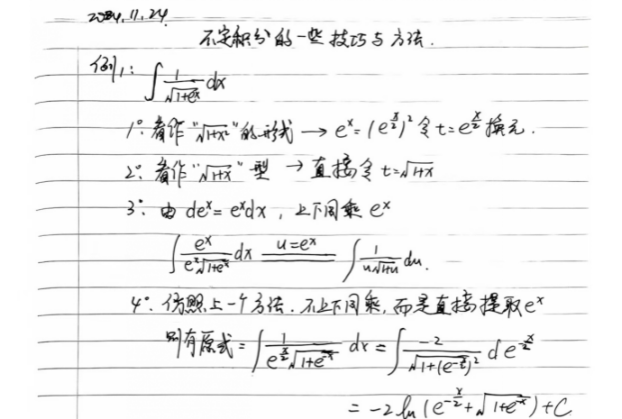 2024.11.24
不定积分的一些技巧与方法.
例1: ∫ 1/√(1+e^x) dx
1°. 看作"√(1+x²)"的形式 → e^x = (e^(x/2))² 令 t=e^(x/2) 换元.
2°. 看作"√(1+x)"型 → 直接令 t=√(1+x)
3°. 由 de^x = e^x dx , 上下同乘 e^x
∫ e^x/(e^x√(1+e^x)) dx u=e^x ∫ 1/(u√(1+u)) du.
4°. 仿照上一个方法. 不上下同乘, 而是直接提取 e^x
则有原式 = ∫ 1/(e^(x/2)√(1+e^(-x))) dx = ∫ -2/√(1+(e^(-x/2))²) de^(-x/2)
= -2ln(e^(-x/2)+√(1+e^(-x)))+C